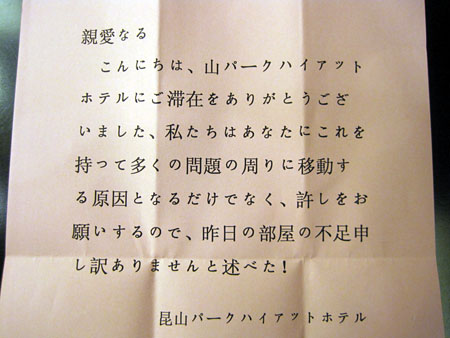 親愛なる
こんにちは、山パークハイアット
ホテルにご滞在をありがとうござ
いました、私たちはあなたにこれを
持って多くの問題の周りに移動す
る原因となるだけでなく、許しをお
願いするので、昨日の部屋の不足申
し訳ありませんと述べた!
昆山パークハイアットホテル